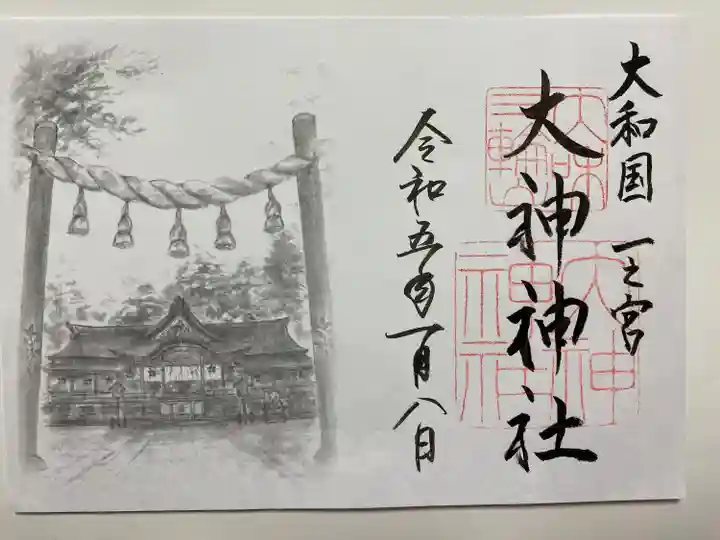 大和国 一之宮
大神神社
令和五年一月八日